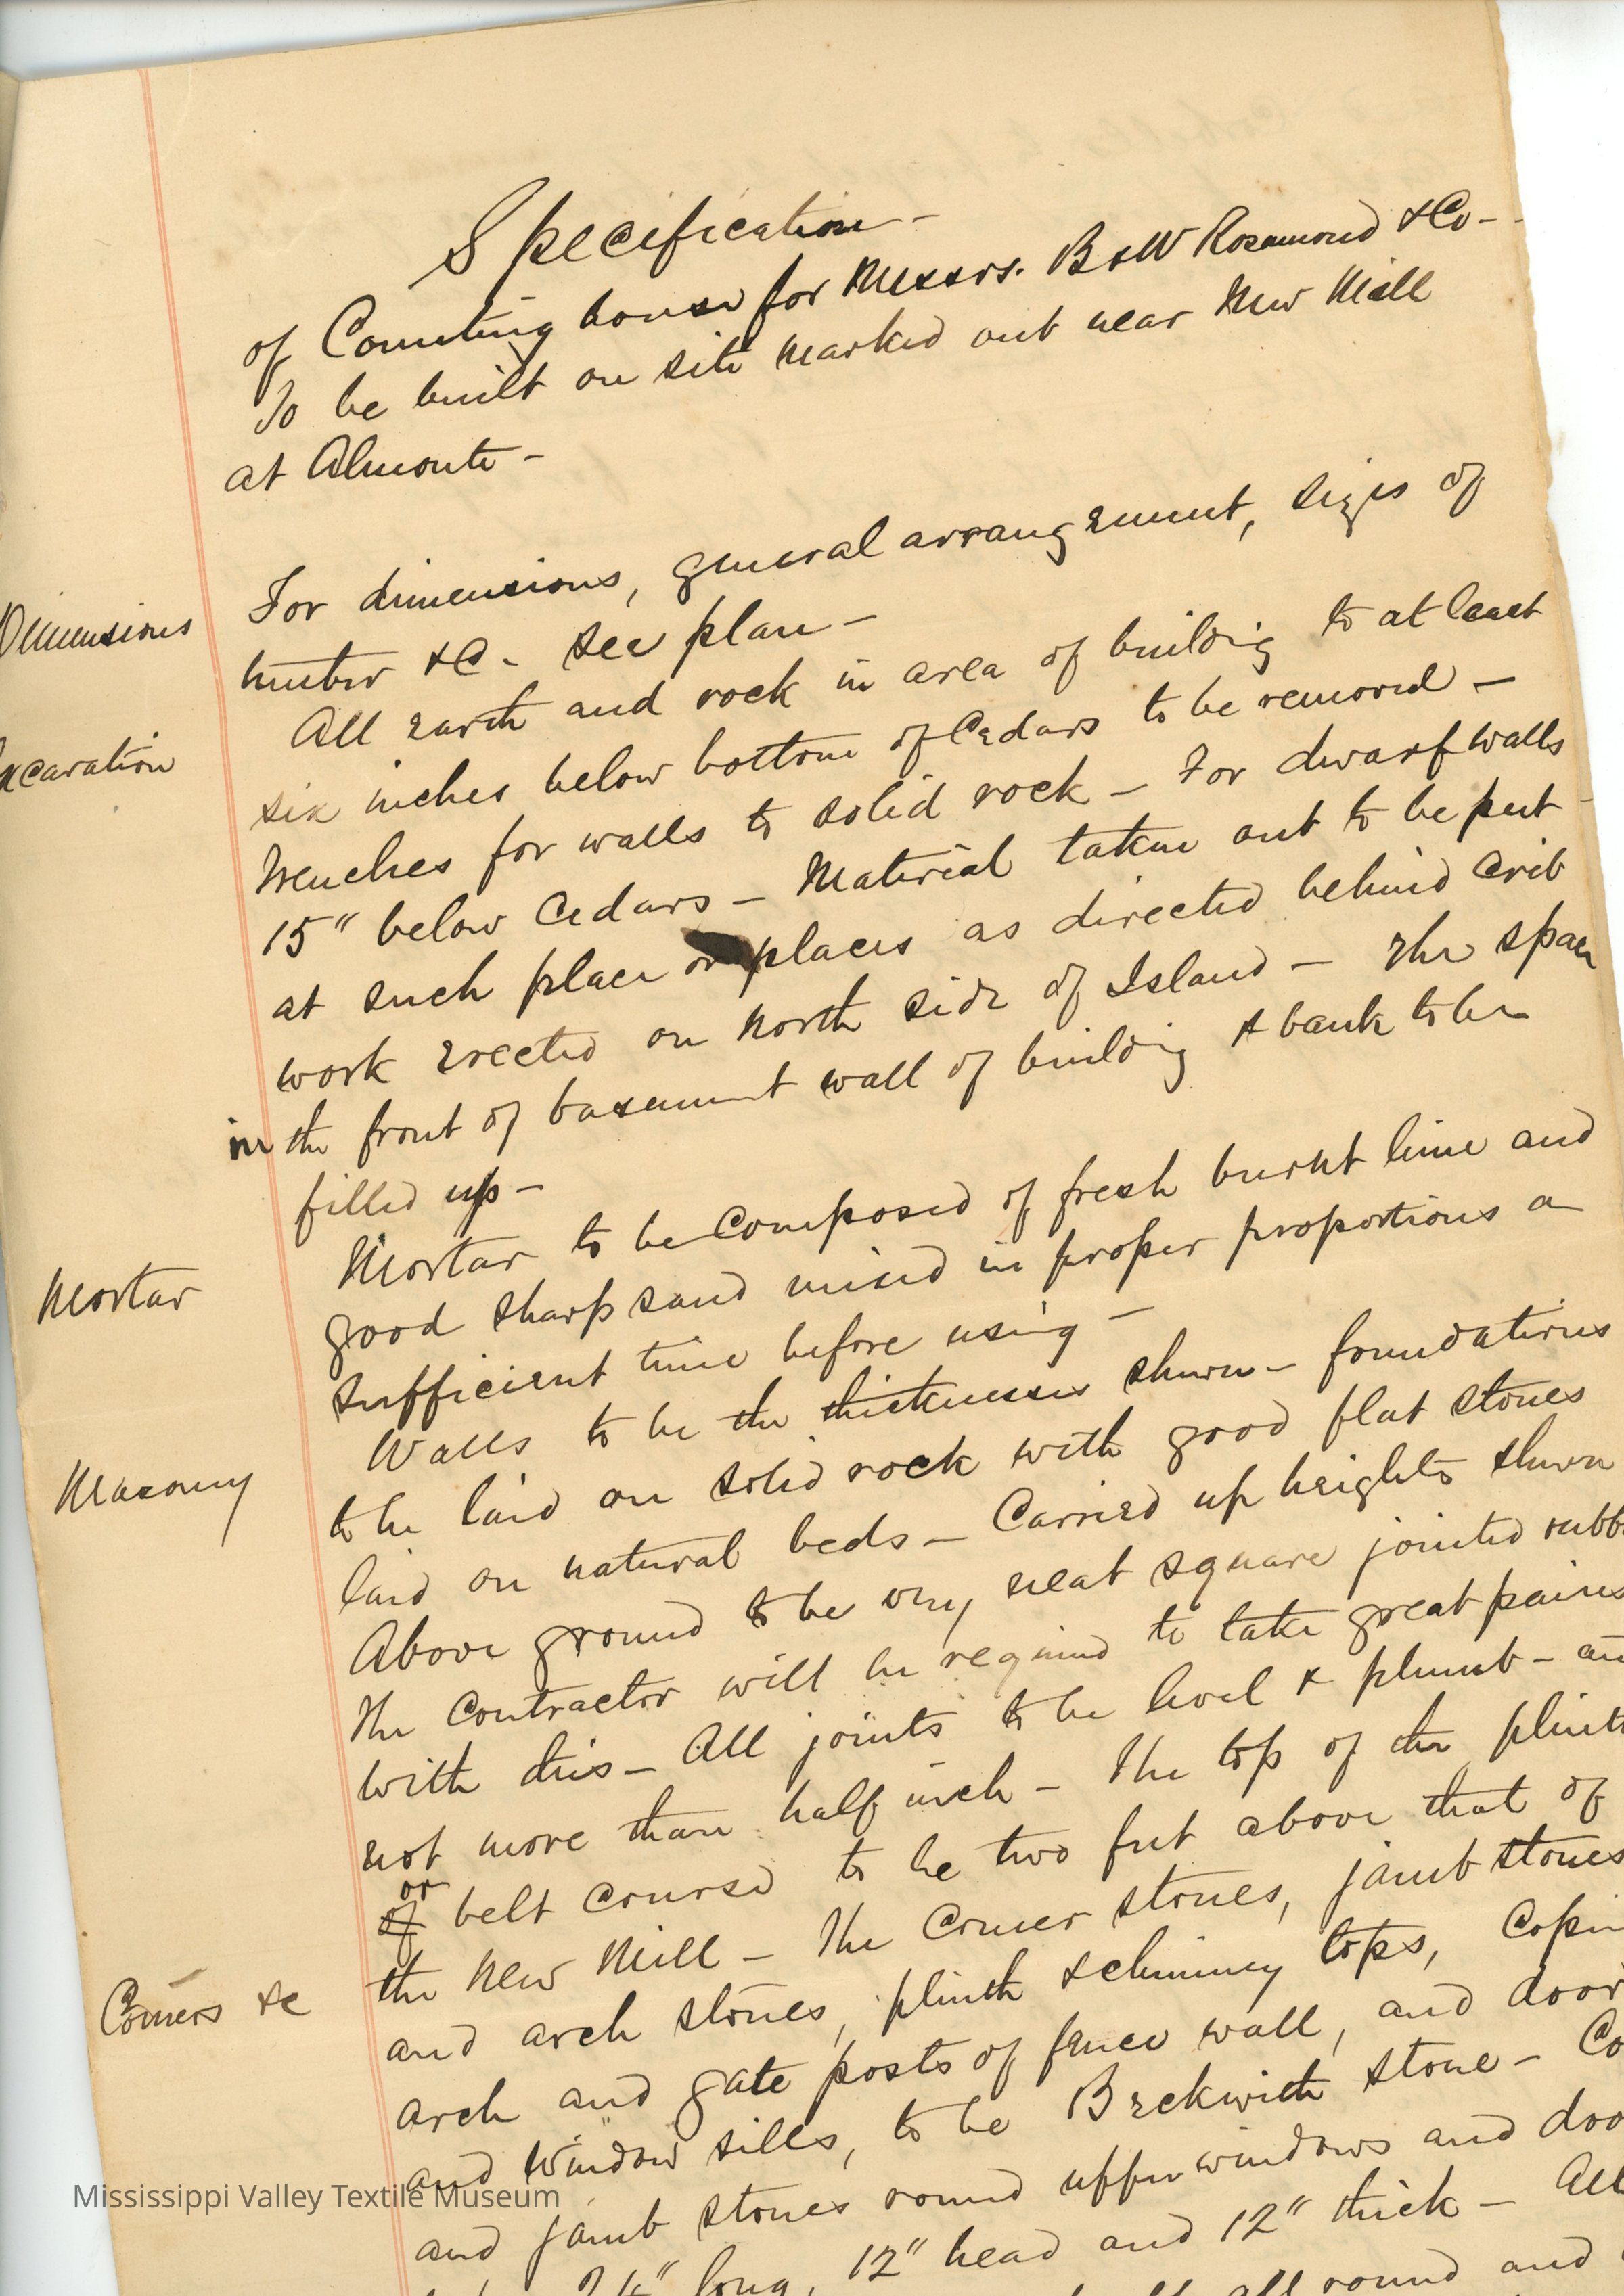 Specification -
of Counting house for Messrs. B & W Rosamond & Co -
To be built on site marked out near New Mill
at Almonte -
Dimensions For dimensions, general arrangement, sizes of
timber &C - see plan -
Excavation All earth and rock in area of building to at least
six inches below bottom of Cedars to be removed -
trenches for walls to solid rock - For dwarf walls
15" below Cedars - Material taken out to be put
at such place or places as directed behind Crib
work erected on North side of Island - The space
in the front of basement wall of building & bank to be
filled up -
Mortar Mortar to be Composed of fresh burnt lime and
good sharp sand mixed in proper proportions a
sufficient time before using -
Masonry Walls to be the thicknesses shewn - foundations
to be laid on solid rock with good flat stones
laid on natural beds - Carried up heights shewn
Above ground to be very neat square jointed rubb
the Contractor will be required to take great pains
with this - All joints to be level & plumb - an
not more than half inch - The top of the plinth
or
of belt Course to be two feet above that of
the New Mill - The Corner stones, jamb stones
Corners &c and arch stones, plinth & chimney tops, Copin
arch and gate posts of fence wall, and door
and Window sills, to be Beckwith stone - Co
and jamb stones round upper windows and doo
long, 12" head and 12" thick - All
all round and
Mississippi Valley Textile Museum